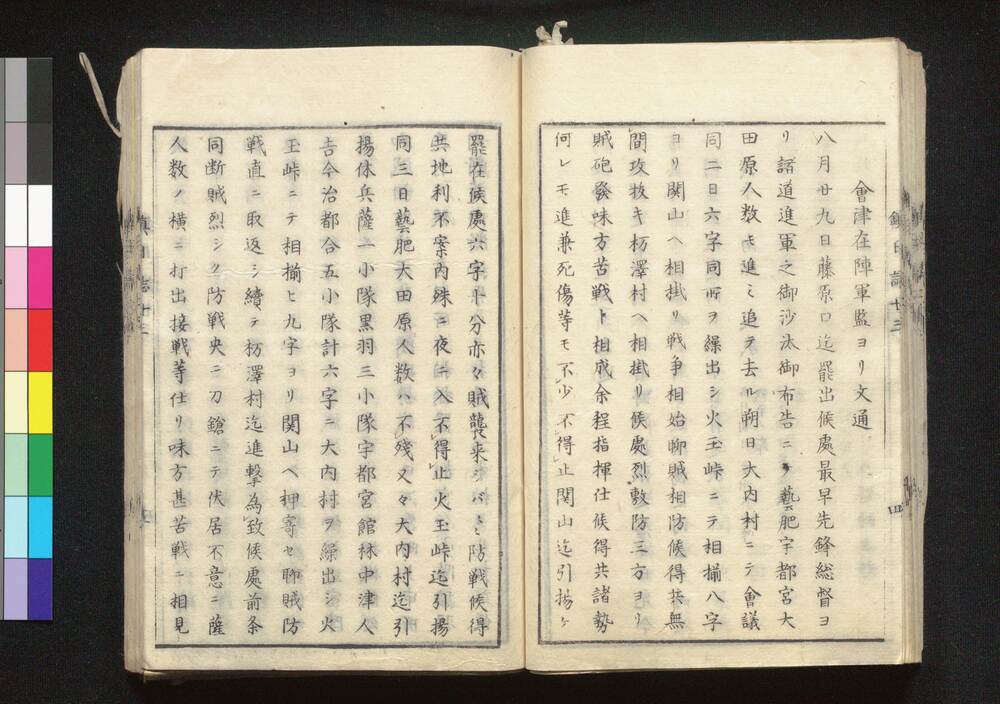 會津在陣軍監ヨリ文通
八月廿九日藤原口迄罷出候處最早先鋒総督ヨ
リ諸道進軍之御沙汰御布告ニ藝肥宇都宮大
田原人数モ進ミ追テ去ル朔日大内村ニテ會議
同二日六字同所ヲ繰出シ火玉峠ニテ相揃八字
ヨリ関山ヘ相掛リ戦争相始聊賊相防候得共無
間攻抜キ栃澤村ヘ相掛リ候處烈敷防三方ヨリ
賊砲發味方苦戦ト相成余程指揮仕候得共諸勢
何レモ進兼死傷等モ不少不得止関山迄引揚ケ
罷在候處六字十分亦々賊襲来シバヽヽ防戦候得
共地利不案内殊ニ夜ニ入不得止火玉峠迄引揚
同三日藝肥大田原人数ハ不残又々大内村迄引
揚休兵薩一小隊黒羽三小隊宇都宮館林中津人
吉今治都合五小隊計六字ニ大内村ヲ繰出シ火
玉峠ニテ相揃ヒ九字ヨリ関山ヘ押寄セ聊賊防
戦直ニ取返シ續テ栃澤村迄進撃為致候處前条
同断賊烈シク防戦央ニ刀鎗ニテ伏居不意ニ薩
人数ノ横ニ打出接戦等仕リ味方甚苦戦ニ相見